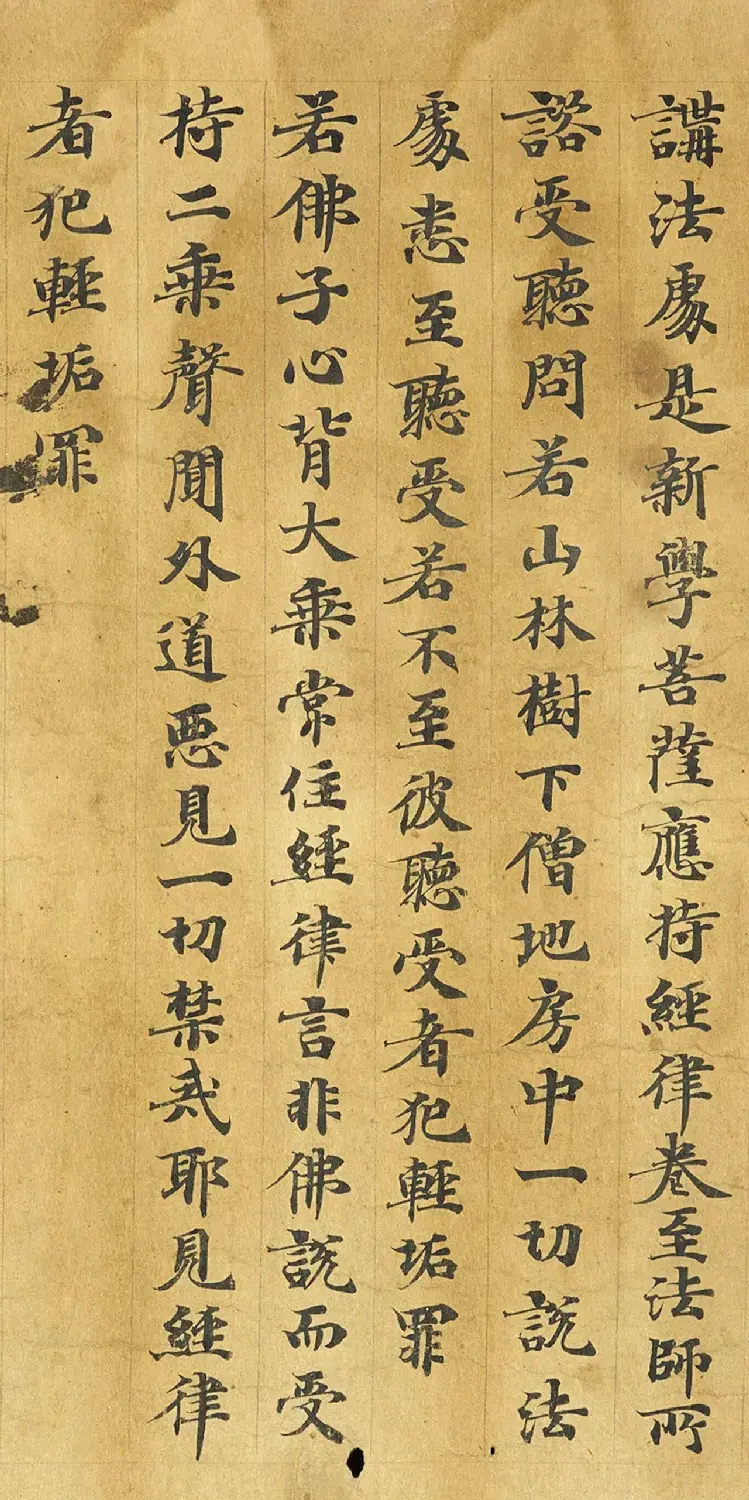 講法處是新學菩薩應持經律卷至法師所
諮受聽問若山林樹下僧地房中一切說法
處悉至聽受若不至彼聽受者犯輕垢罪
若佛子心背大乘常住經律言非佛說而受
持二乘聲聞外道惡見一切禁戒耶見經律
者犯輕垢罪